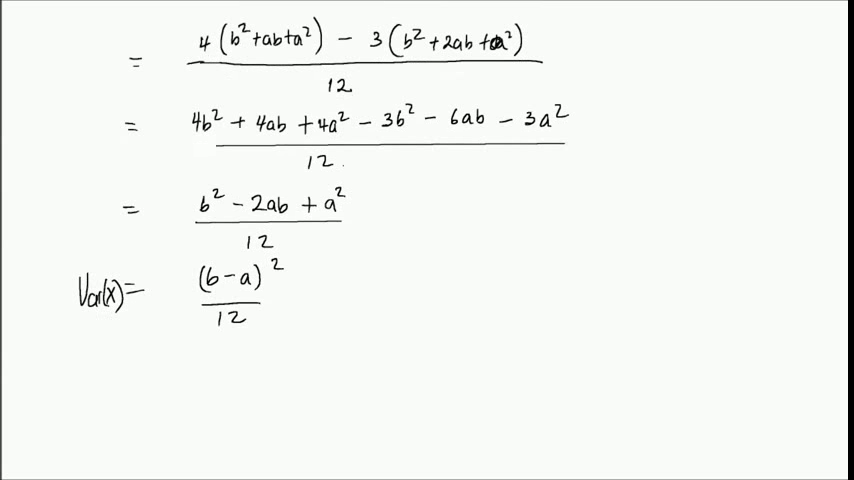 = 4(b²+ab+a²) − 3(b²+2ab+a²) / 12
= 4b² + 4ab + 4a² − 3b² − 6ab − 3a² / 12.
= b² − 2ab + a² / 12
Var(x) = (b−a)² / 12